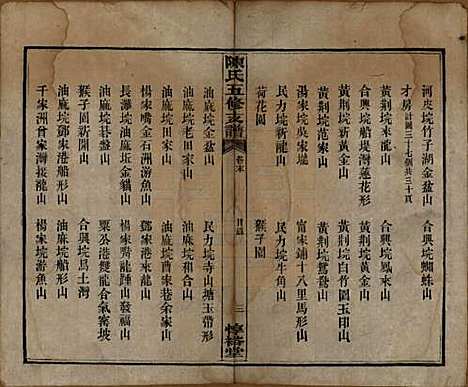 河皮垸竹子湖金盆山
合興垸蜘蛛山
才房計圖三十七個共三十頁
黃荆垸來龍山
合興垸鳳來山
合興垸船堤灣蓮花形
合荆垸黃金山
黃荆垸新黃金山
黃荆垸白竹園玉印山
黃荆垸范家山
黃荆垸鴛鴦山
湯家垸吳家堤
甯家鋪十八里馬形山
民力垸新龍山
民力垸牛角山
荷花園
猴子園
陳氏五修支譜
卷末
目錄
二
惇裕堂
油麻垸田家山
民力垸寺山塘玉帶形
油麻垸老田家山
油麻垸和合山
楊家嘴金石洲游魚山
油麻垸曹家巷余家山
油麻垸游魚山
鄧家港來龍山
長灘垸油麻垸金貓山
楊家港龍腫山發福山
油麻垸碁盤山
粟公港雙龍合氣窩坡
猴子園新開山
合興垸馬土灣
油麻垸鄧家港船形山
油麻垸船形山
千家洲曾家灣接龍山
楊家垸游魚山